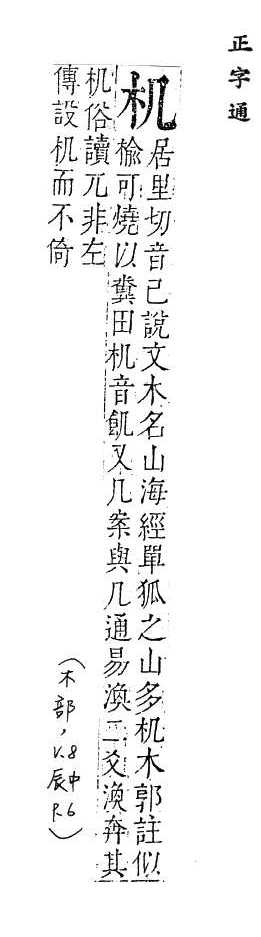 正字通
机
居里切音己說文木名山海經單狐之山多机木郭註似
榆可燒以糞田机音飢又几案與几通易渙二爻渙奔其
机俗讀兀非左
傳設机而不倚
(木部,V.8
辰中
P.6)